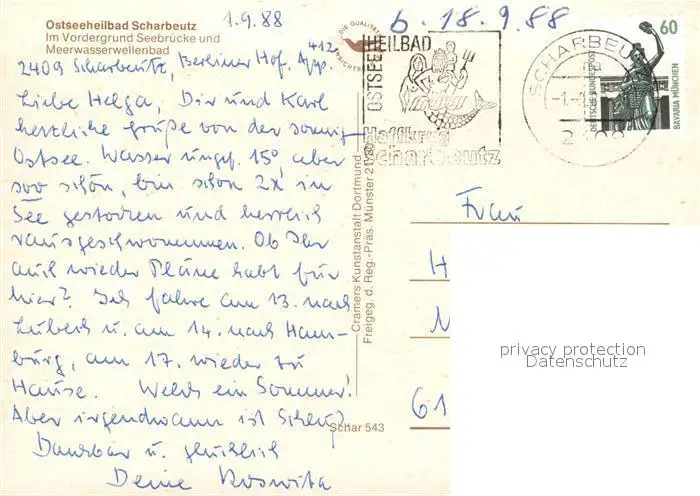 Ostseeheilbad Scharbeutz
Im Vordergrund Seebrücke und
Meerwasserwellenbad
1.9.88
b. 18.9.88
2409 Scharbeutz, Berliner Hof, App. 412
Liebe Helga, Dir und Karl
herzliche Grüße von der sonnig
Ostsee. Wasser ungf. 15°, aber
soo schön, bin schon 2x in
See gestochen und herrlich
rausgeschwommen. Ob Ihr
auch wieder Pläne habt für
hier? Ich fahre am 13. nach
Lübeck u. am 14. nach Ham-
burg, am 17. wieder zu
Hause. Welch ein Sommer!
Aber irgendwann ist Schluß
Dankbar u. glücklich
Deine Roswita
Cramers Kunstanstalt Dortmund
Freigeg. d. Reg.-Präs. Münster
Schar 543
DIE QUALITÄT
OSTSEE
HEILBAD
Haffkrug
Scharbeutz
SCHARBEU
60
DEUTSCHE BUNDESPOST
BAVARIA MÜNCHEN
Frau
H
N
61
privacy protection
Datenschutz